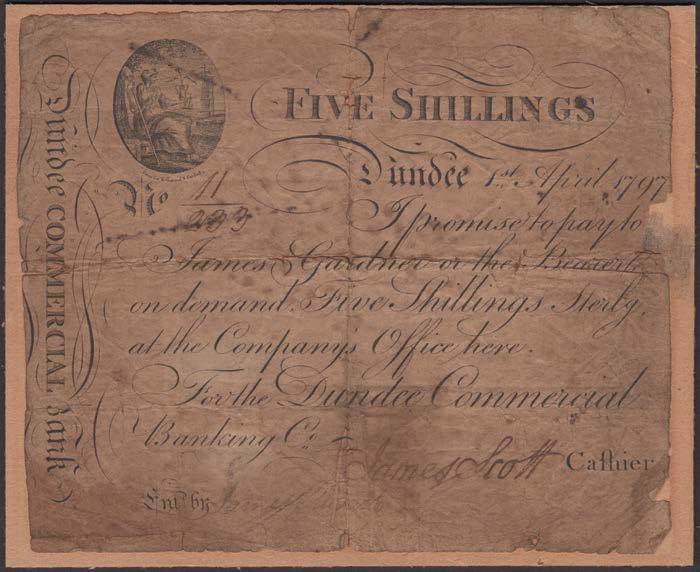 Dundee COMMERCIAL Bank
FIVE SHILLINGS
Dundee 1st. April 1797
No 11
233
I promise to pay to
James Gardner or the Bearer
on demand Five Shillings Sterlg.
at the Company's Office here.
For the Dundee Commercial
Banking Co.
James Scott Caſhier
Entd. by James